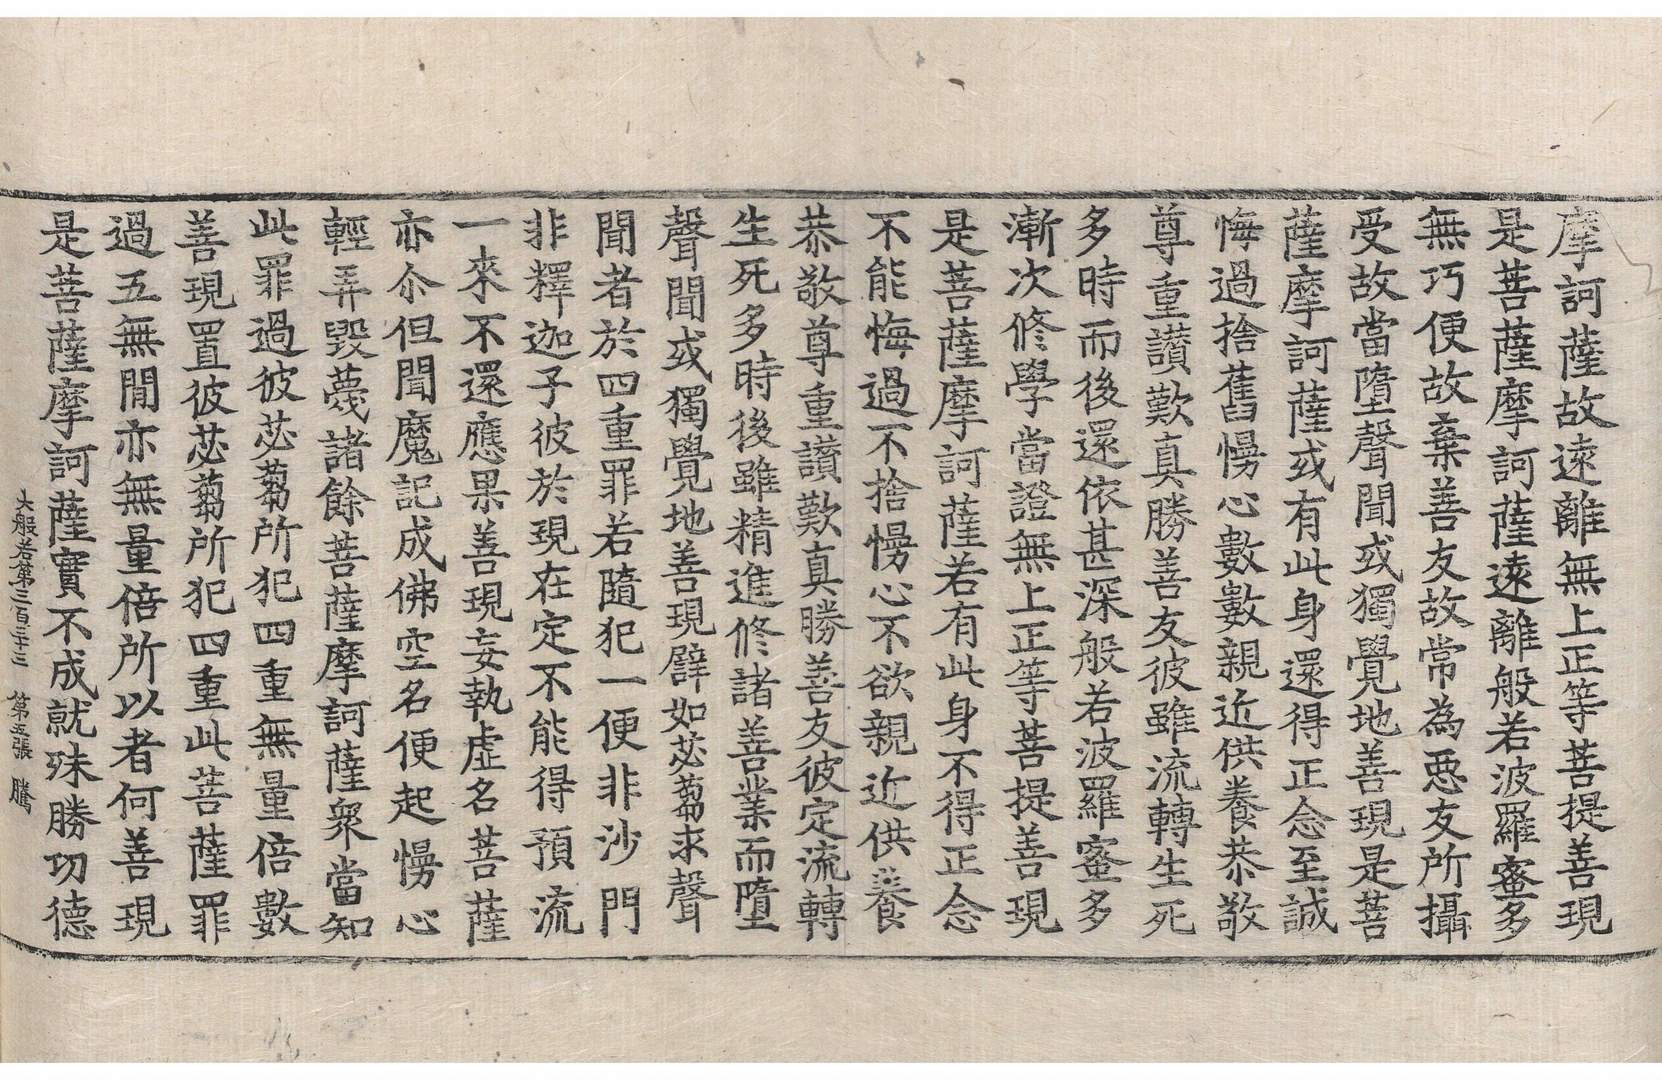 摩訶薩故遠離無上正等菩提善現
是菩薩摩訶薩遠離般若波羅蜜多
無巧便故棄善友故常為惡友所攝
受故當墮聲聞或獨覺地善現是菩
薩摩訶薩或有此身還得正念至誠
悔過捨舊慢心數數親近供養恭敬
尊重讚歎真勝善友彼雖流轉生死
多時而後還依甚深般若波羅蜜多
漸次修學當證無上正等菩提善現
是菩薩摩訶薩若有此身不得正念
不能悔過不捨慢心不欲親近供養
恭敬尊重讚歎真勝善友彼定流轉
生死多時後雖精進修諸善業而墮
聲聞或獨覺地善現譬如苾蒭求聲
聞者於四重罪若隨犯一便非沙門
非釋迦子彼於現在定不能得預流
一來不還應果善現妄執虛名菩薩
亦尒但聞魔記成佛空名便起慢心
輕弄毀蔑諸餘菩薩摩訶薩衆當知
此罪過彼苾蒭所犯四重無量倍數
善現置彼苾蒭所犯四重此菩薩罪
過五無間亦無量倍所以者何善現
是菩薩摩訶薩實不成就殊勝功德
大般若第三百三十三 第五張 騰